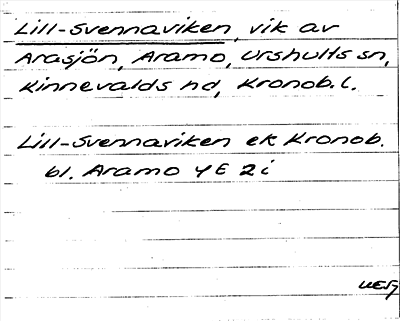 Lill-Svennaviken, vik av
Arasjön, Aramo, Urshults sn,
Kinnevalds hd, Kronob. l.
Lill-Svennaviken ek Kronob.
bl. Aramo 4E 2i